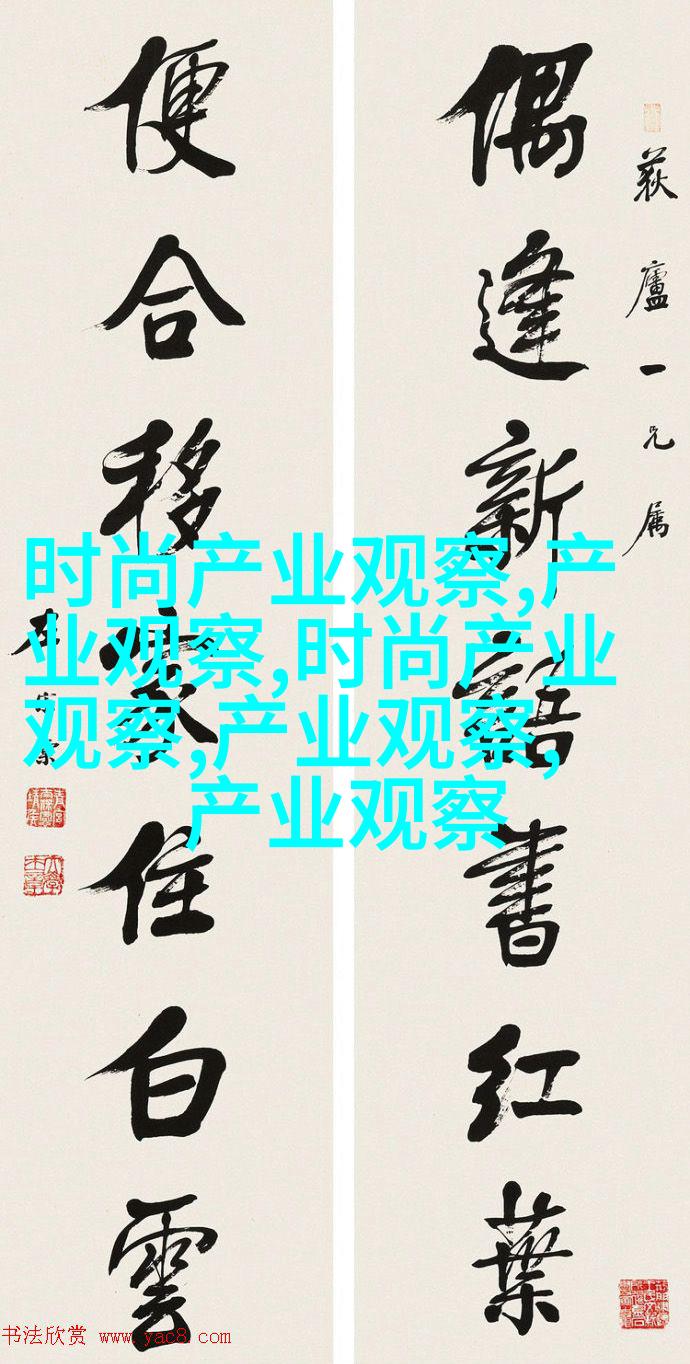 荻廬一兄属
偶逢新語書紅葉
便合移家住白雲
左宗棠
时尚产业观察,产
业观察,时尚产业
观察,产业观察,
产业观察
书法欣赏 www.yac8.com